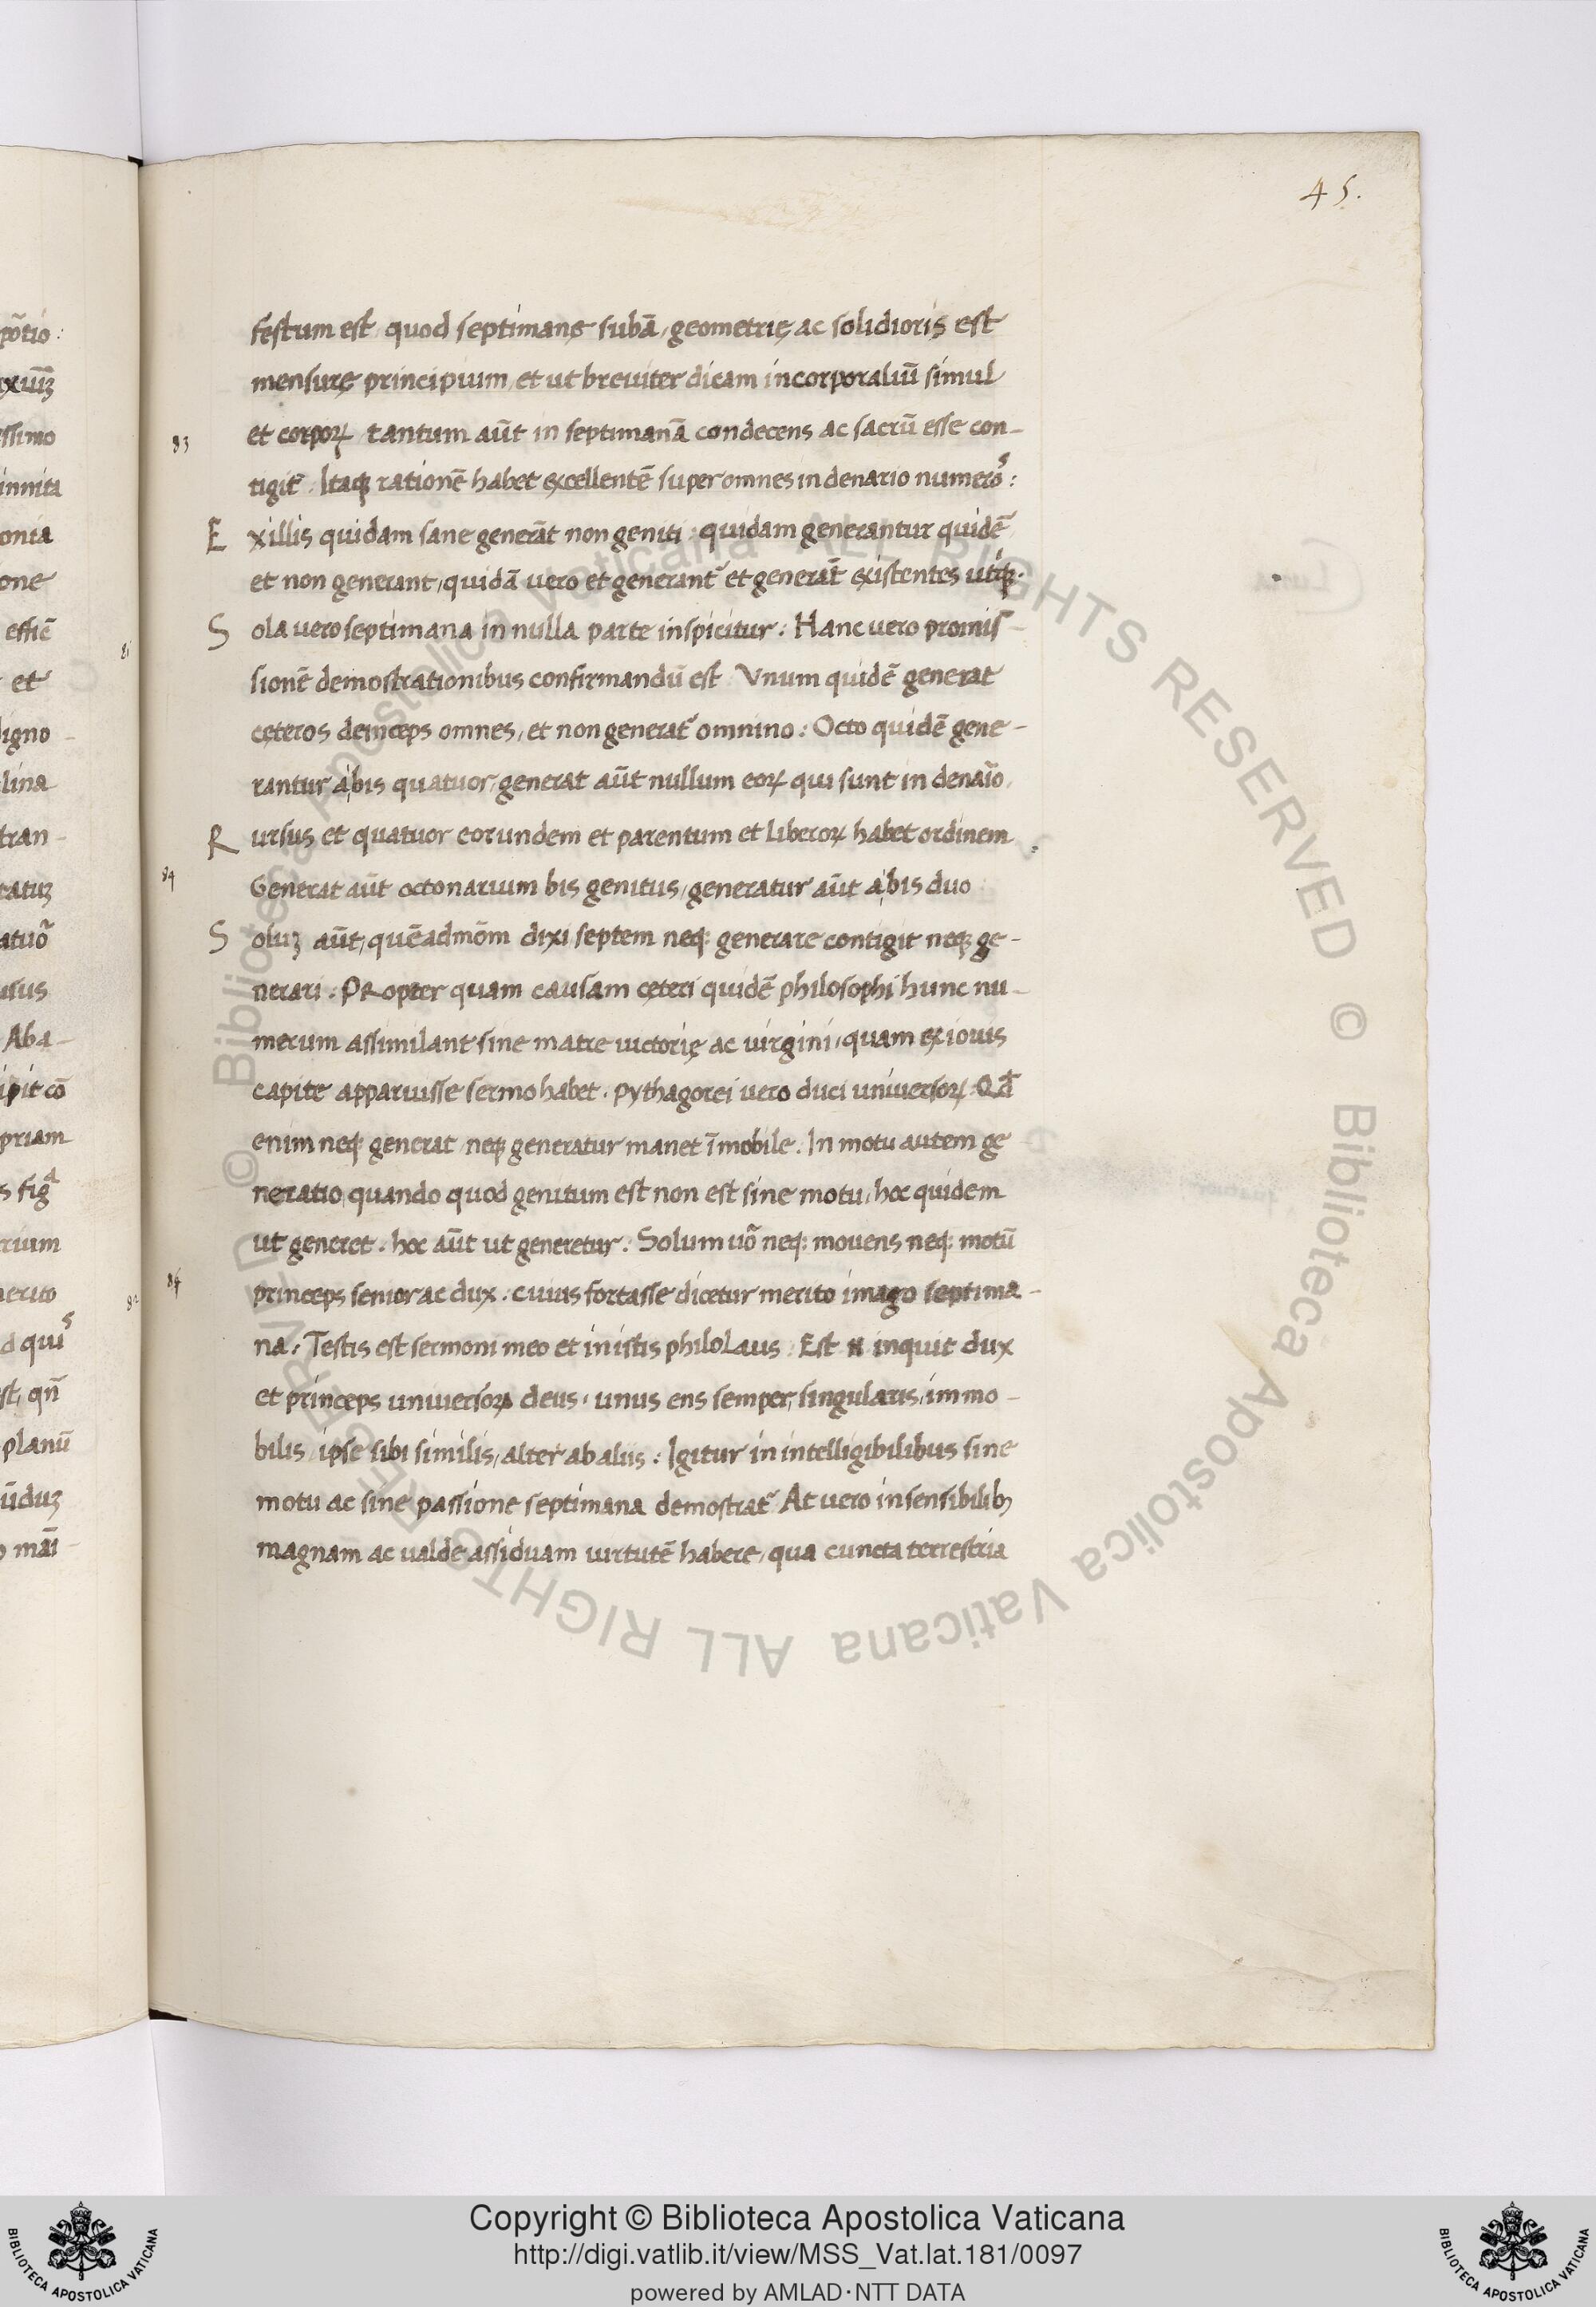 45.
festum est quod septimanę subā, geometrię ac solidioris est
mensurę principium, et ut breuiter dicam incorporaliū simul
83 et corpoꝝ tantum aūt in septimanā condecens ac sacrū esse con-
tigit̄. Itaqꝫ rationē habet excellentē super omnes in denario numeros:
Ex illis quidam sane generāt non geniti: quidam generantur quidē
et non generant, quidā vero et generant̄ et generāt existentes utiqꝫ.
Sola vero septimana in nulla parte inspicitur: Hanc vero promis-
sionē demostrationibus confirmandū est. Vnum quidē generat
cęteros deinceps omnes, et non generat̄ omnino: Octo quidē gene-
rantur a bis quatuor, generat aūt nullum eoꝝ qui sunt in denaīo.
Rursus et quatuor eorundem et parentum et liberoꝝ habet ordinem
84 Generat aūt octonarium bis genitus, generatur aūt a bis duo
Soluꝫ aūt, quēadmōm dixi septem neqꝫ generare contigit neqꝫ ge-
nerari: PRopter quam causam cęteri quidē philosophi hunc nu-
merum assimilant sine matre uictorię ac uirgini, quam ex iouis
capite apparuisse sermo habet. pythagorei uero duci uniuersoꝝ. Qd̄
enim neqꝫ generat neqꝫ generatur manet īmobile. In motu autem ge
neratio, quando quod genitum est non est sine motu, hoc quidem
ut generet. hoc aūt ut generetur: Solum uō neqꝫ mouens neqꝫ motū
84 princeps senior ac dux: cuius fortasse dicetur merito imago septima-
na: Testis est sermoni meo et in istis philoLaus. Est inquit dux
et princeps uniuersoꝝ deus, unus ens semper, singularis, immo-
bilis, ipse sibi similis, alter ab aliis: Igitur in intelligibilibus sine
motu ac sine passione septimana demostrat̄ At uero in sensibilibꝫ
magnam ac ualde assiduam uirtutē habere, qua cuncta terrestria
Copyright © Biblioteca Apostolica Vaticana
http://digi.vatlib.it/view/MSS_Vat.lat.181/0097
powered by AMLAD·NTT DATA
BIBLIOTECA APOSTOLICA VATICANA
BIBLIOTECA APOSTOLICA VATICANA
© Biblioteca Apostolica Vaticana ALL RIGHTS RESERVED © Biblioteca Apostolica Vaticana ALL RIGHTS RESERVED